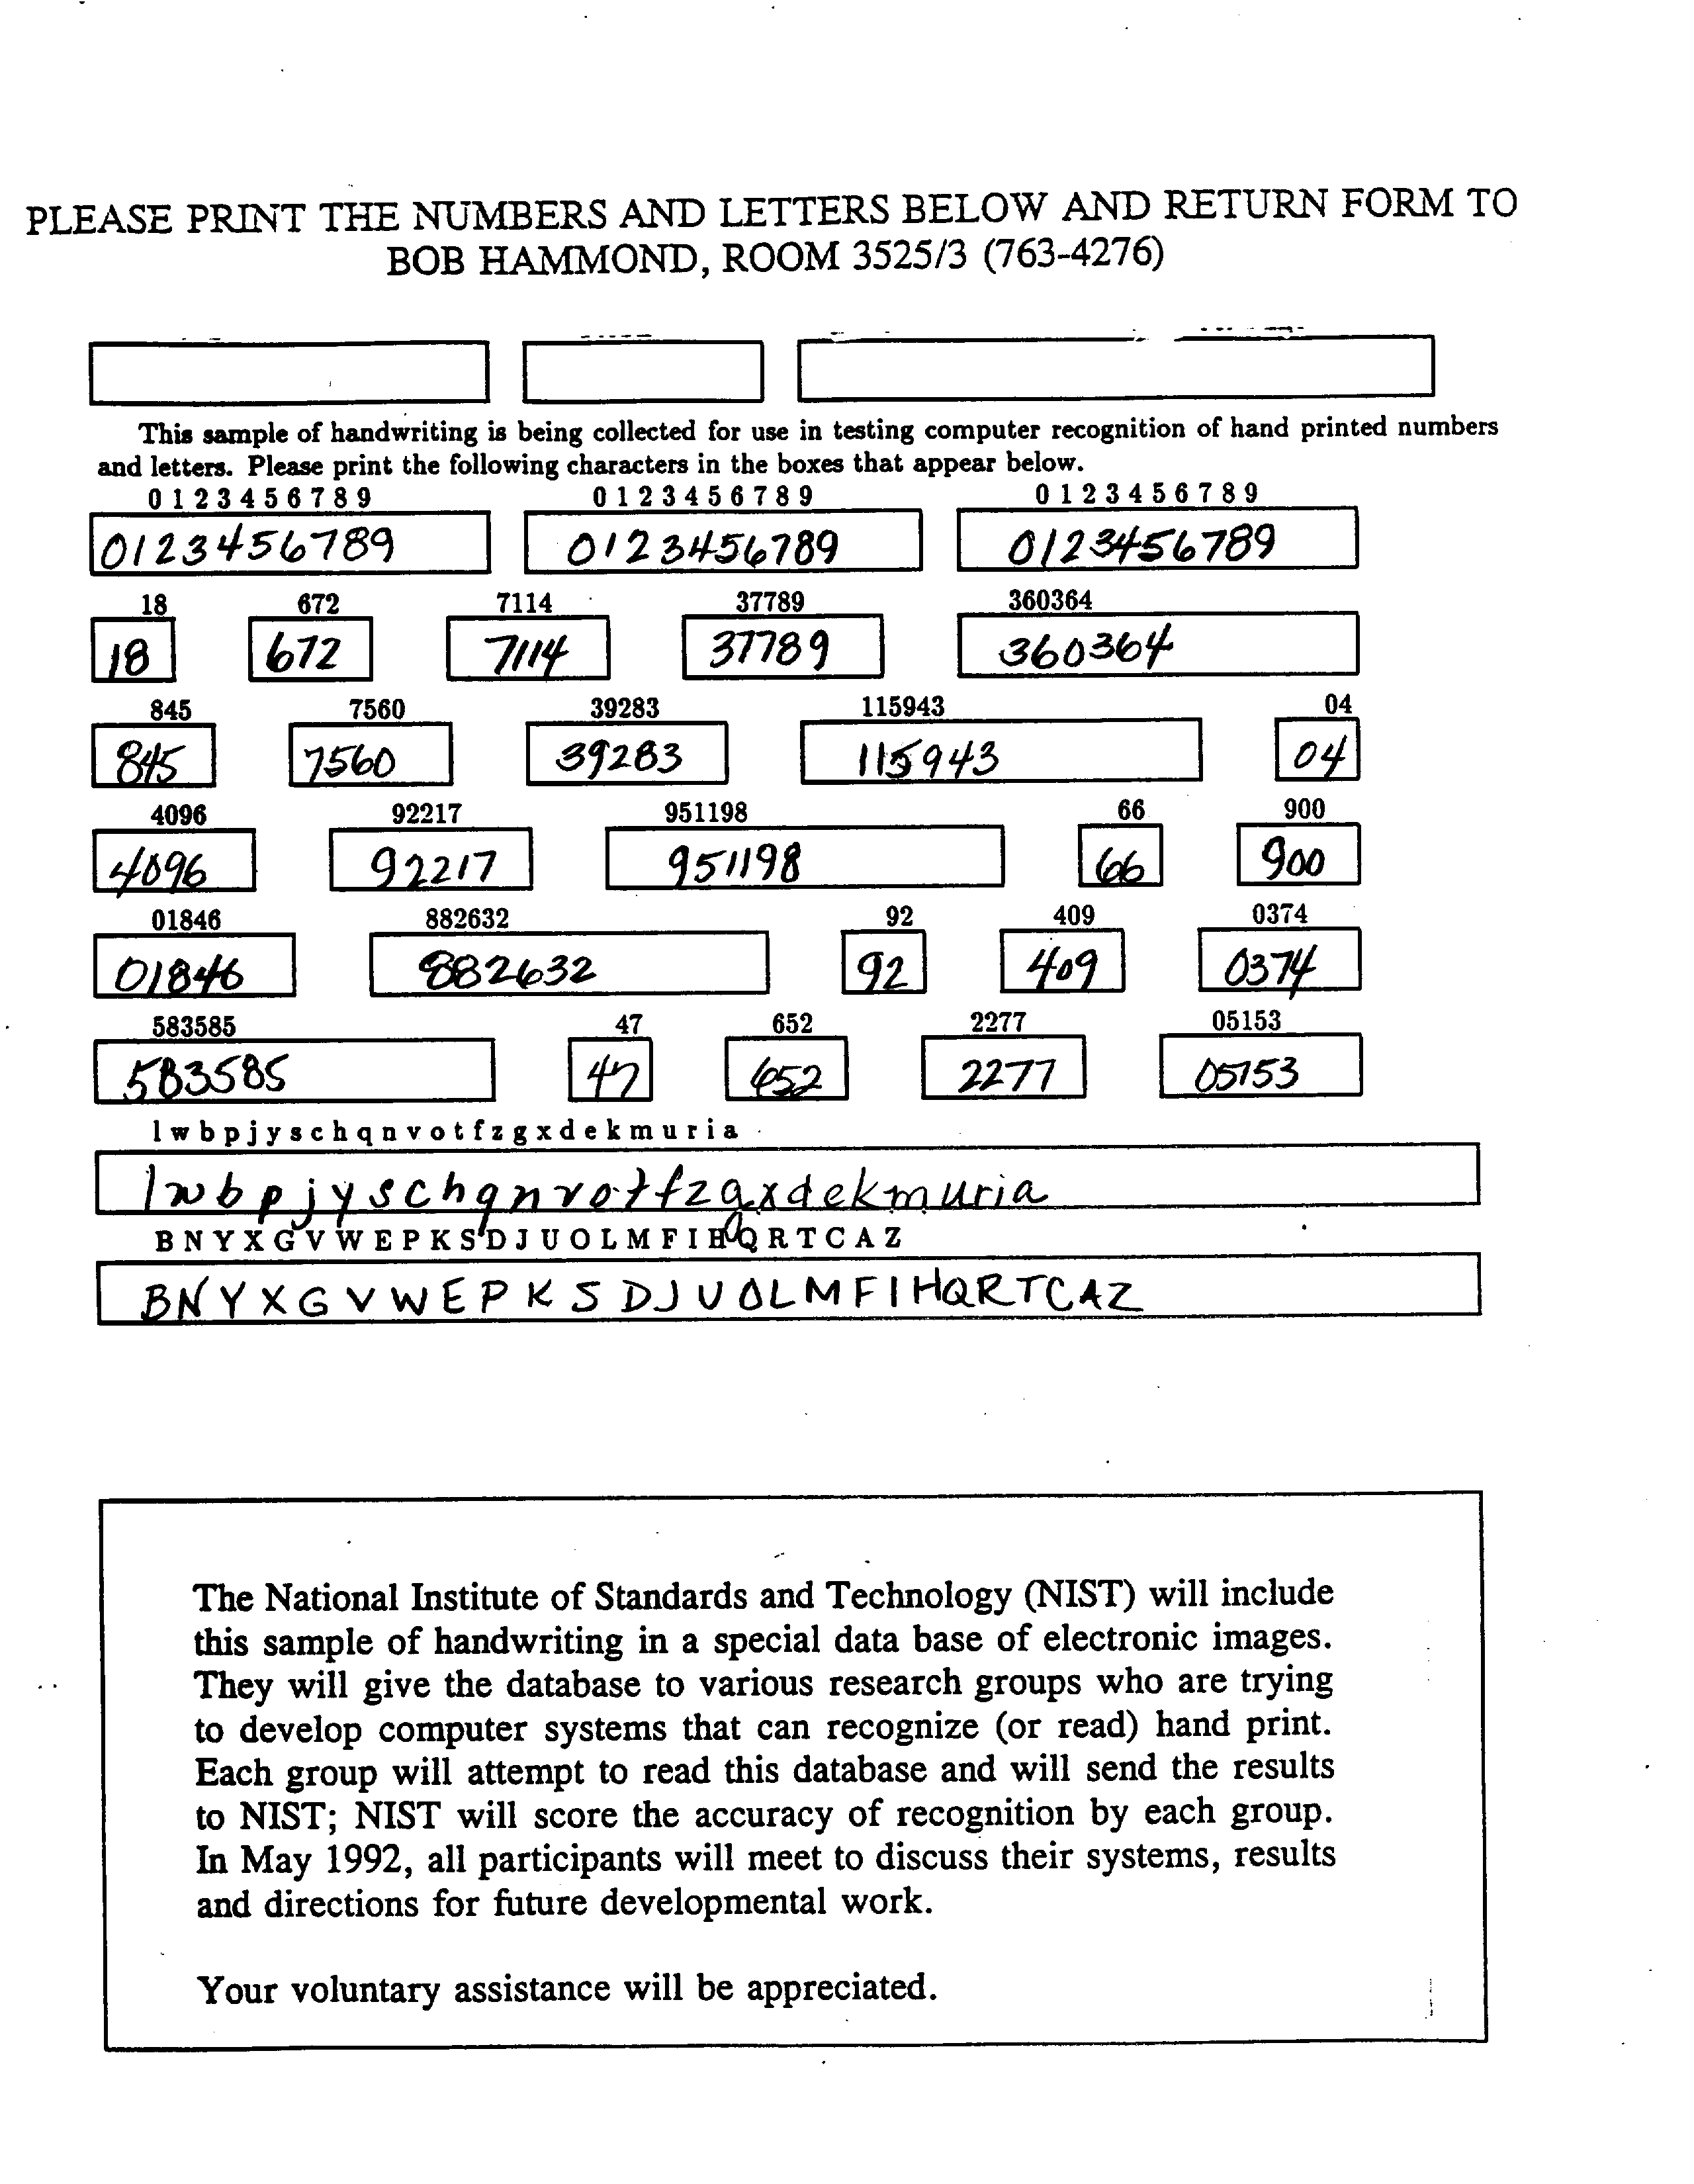 PLEASE PRINT THE NUMBERS AND LETTERS BELOW AND RETURN FORM TO
BOB HAMMOND, ROOM 3525/3 (763-4276)
This sample of handwriting is being collected for use in testing computer recognition of hand printed numbers
and letters. Please print the following characters in the boxes that appear below.
0 1 2 3 4 5 6 7 8 9 0 1 2 3 4 5 6 7 8 9 0 1 2 3 4 5 6 7 8 9
0123456789 0123456789 0123456789
18 672 7114 37789 360364
18 672 7114 37789 360364
845 7560 39283 115943 04
845 7560 39283 115943 04
4096 92217 951198 66 900
4096 92217 951198 66 900
01846 882632 92 409 0374
01846 882632 92 409 0374
583585 47 652 2277 05153
583585 47 652 2277 05153
l w b p j y s c h q n v o t f z g x d e k m u r i a
l w b p j y s c h q n v o t f z g x d e k m u r i a
B N Y X G V W E P K S D J U O L M F I H Q R T C A Z
B N Y X G V W E P K S D J U O L M F I H Q R T C A Z
The National Institute of Standards and Technology (NIST) will include
this sample of handwriting in a special data base of electronic images.
They will give the database to various research groups who are trying
to develop computer systems that can recognize (or read) hand print.
Each group will attempt to read this database and will send the results
to NIST; NIST will score the accuracy of recognition by each group.
In May 1992, all participants will meet to discuss their systems, results
and directions for future developmental work.
Your voluntary assistance will be appreciated.